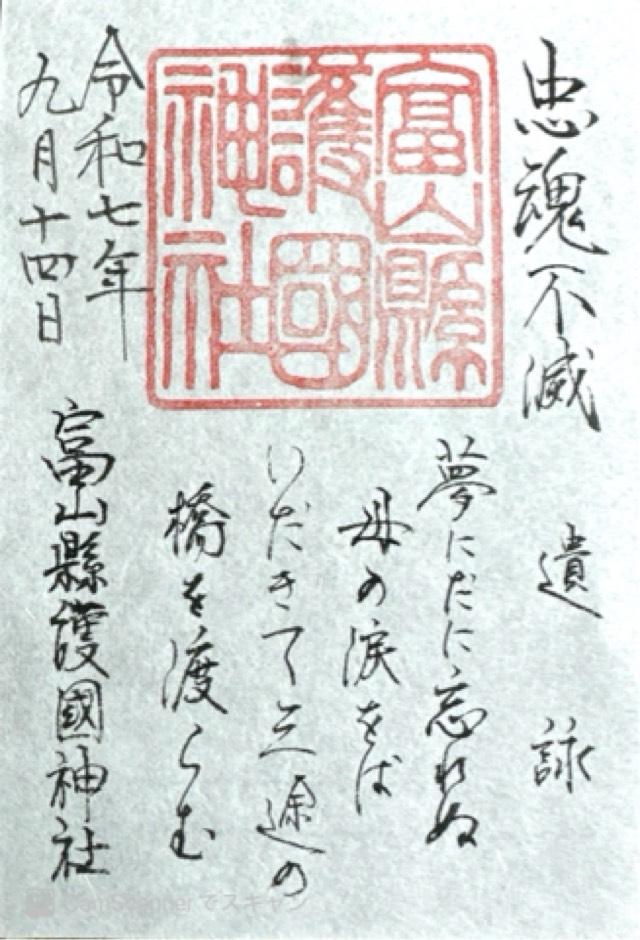 忠魂不滅
遺詠
夢にだに忘れぬ
母の涙をば
いだきて三途の
橋を渡らむ
富山縣
護國
神社
令和七年
九月十四日
富山縣護國神社
CamScannerでスキャン